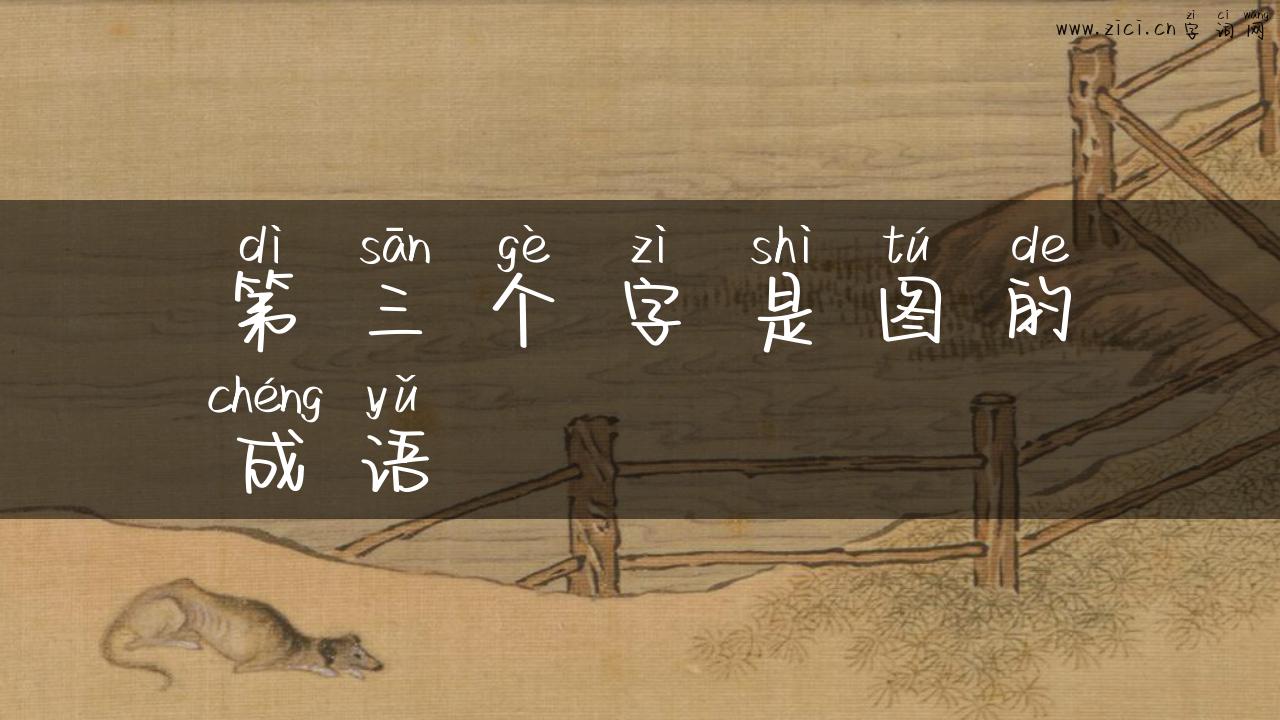 zì cí wǎng
www.zici.cn 字词网
dì sān gè zì shì tú de
第三个字是图的
chéng yǔ
成语